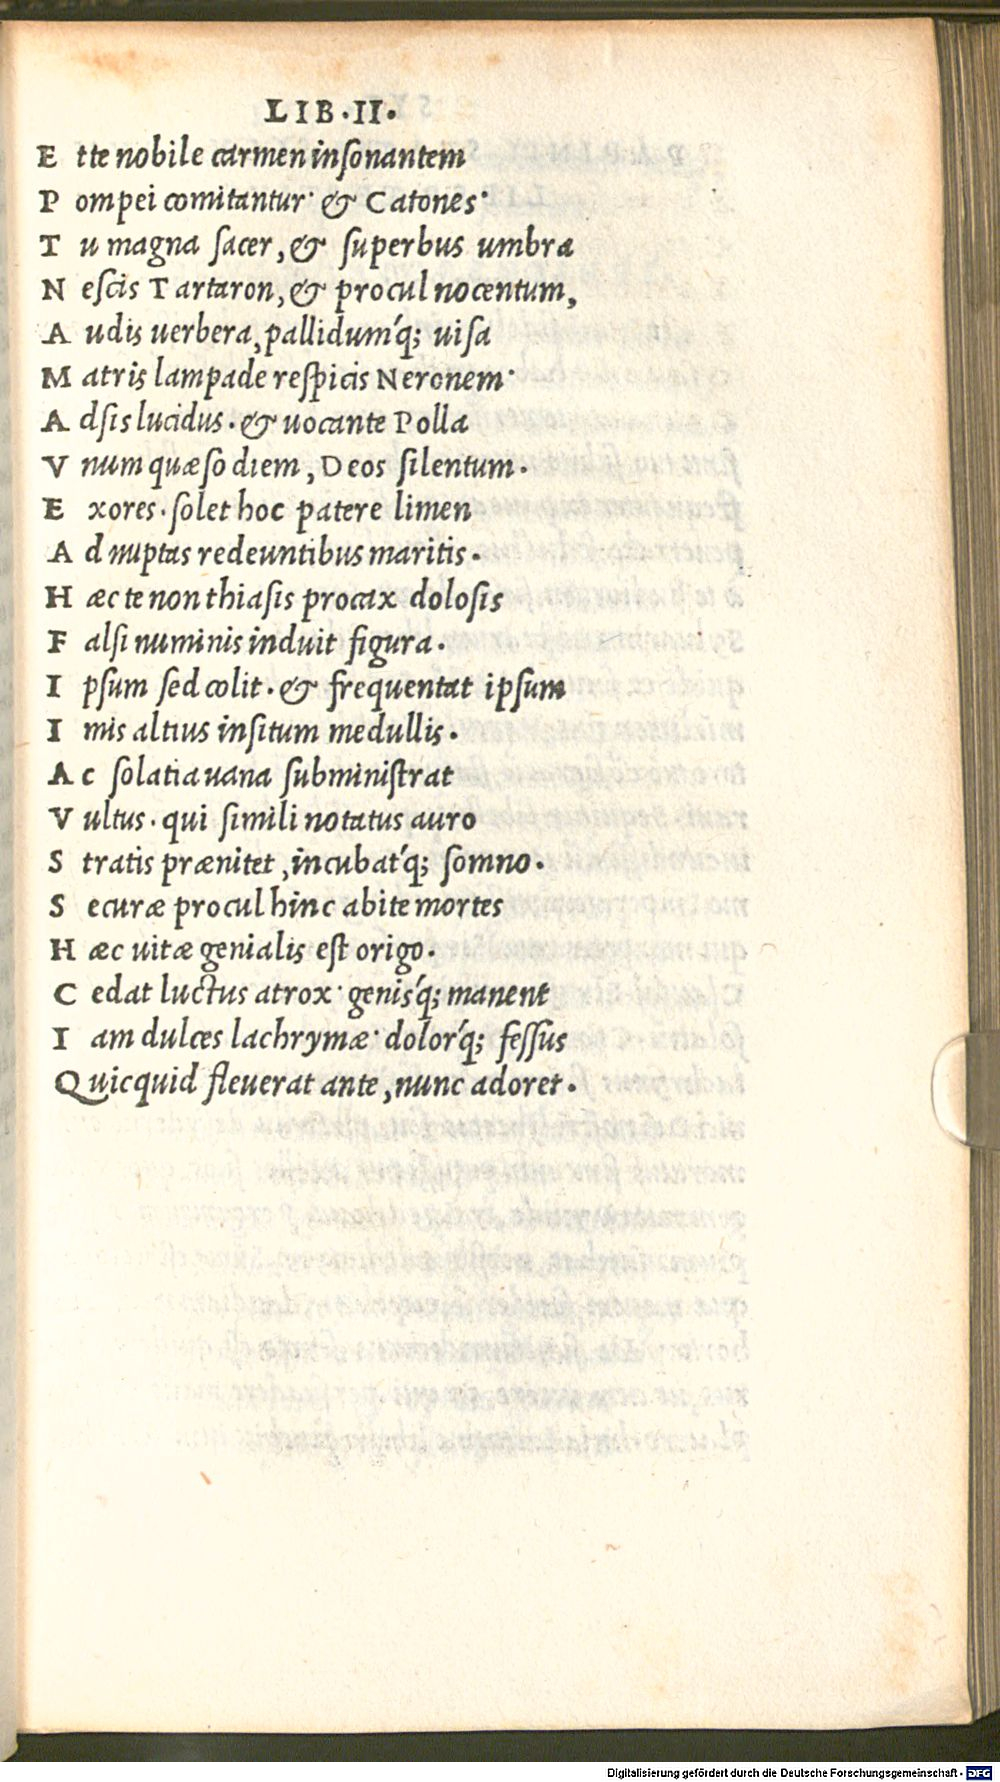 LIB·II·
E tte nobile carmen insonantem
P ompei comitantur· & Catones·
T u magna sacer, & superbus umbra
N escis Tartaron, & procul nocentum,
A udis uerbera, pallidum'q; uisa
M atris lampade respicis Neronem·
A dsis lucidus· & uocante Polla
V num quæso diem, Deos silentum·
E xores· solet hoc patere limen
A d nuptas redeuntibus maritis·
H æc te non thiasis procax dolosis
F alsi numinis induit figura·
I psum sed colit· & frequentat ipsum
I mis altius insitum medullis·
A c solatia uana subministrat
V ultus· qui simili notatus auro
S tratis prænitet, incubat'q; somno·
S ecuræ procul hinc abite mortes
H æc uitæ genialis est origo·
C edat luctus atrox· genis'q; manent
I am dulces lachrymæ· dolor'q; fessus
Quicquid fleuerat ante, nunc adoret·
Digitalisierung gefördert durch die Deutsche Forschungsgemeinschaft - DFG